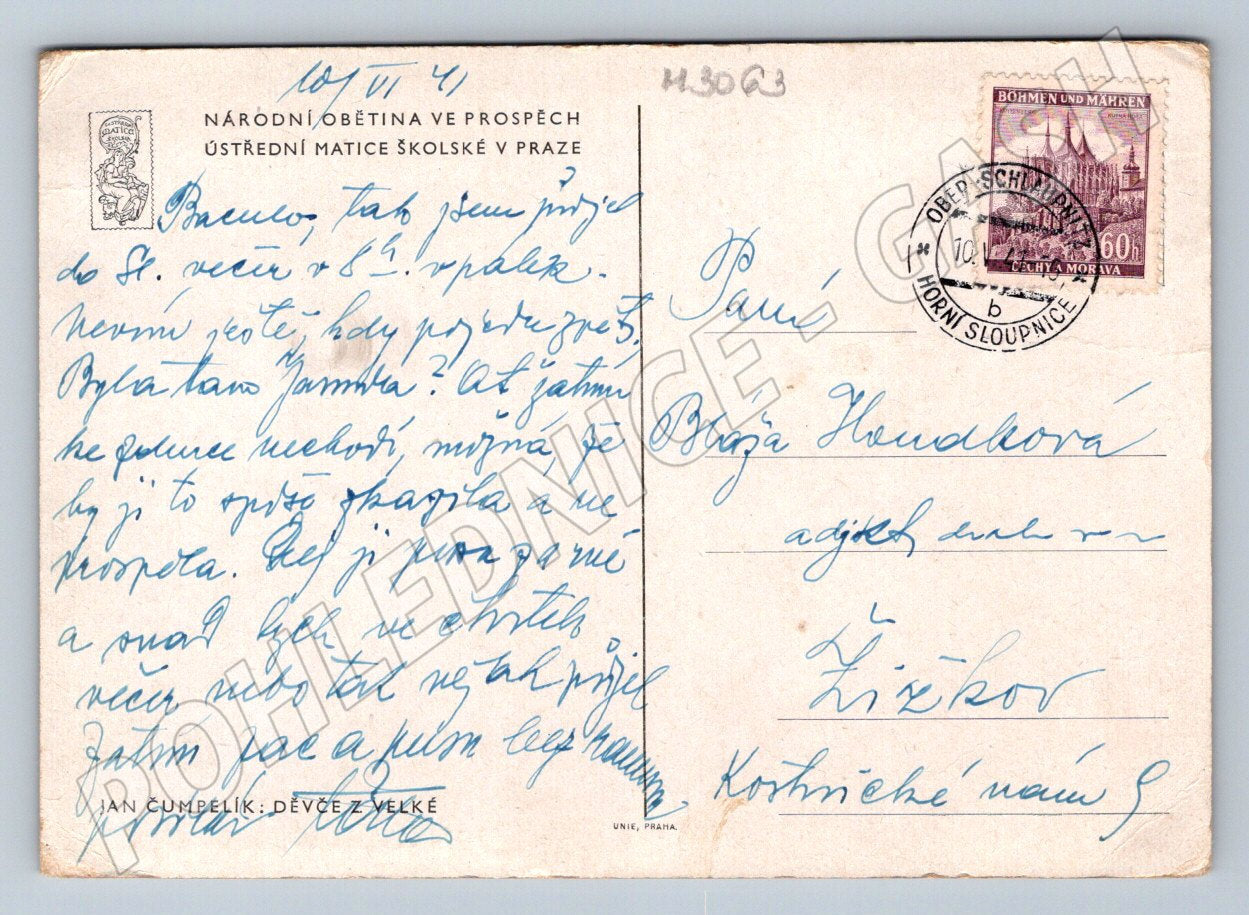 10/VI 41
H3063
NÁRODNÍ OBĚTINA VE PROSPĚCH
ÚSTŘEDNÍ MATICE ŠKOLSKÉ V PRAZE
ÚSTŘEDNÍ
MATICE
ŠKOLSKÁ
tak jsem přijel
do Sl. večer v 8 h. v pátek.
Nevím ještě, kdy pojedu zpět.
Byla tam Jarmila? Ať zatím
ke nechodí, možná, že
by ji to spíše zkazila a ne
prospěla. Dej ji
a snad bych ve čtvrtek
večer nebo tak nějak přijel
Zatím pac a pusu
JAN ČUMPELÍK: DĚVČE Z VELKÉ
UNIE, PRAHA.
BÖHMEN UND MÄHREN
60h
ČECHY A MORAVA
OBER SCHLAUPNITZ
10.V 41-10
b
HORNÍ SLOUPNICE
Paní
Blaža Houdková
Žižkov
Kostnické nám 9
POHLEDNICE - GACH